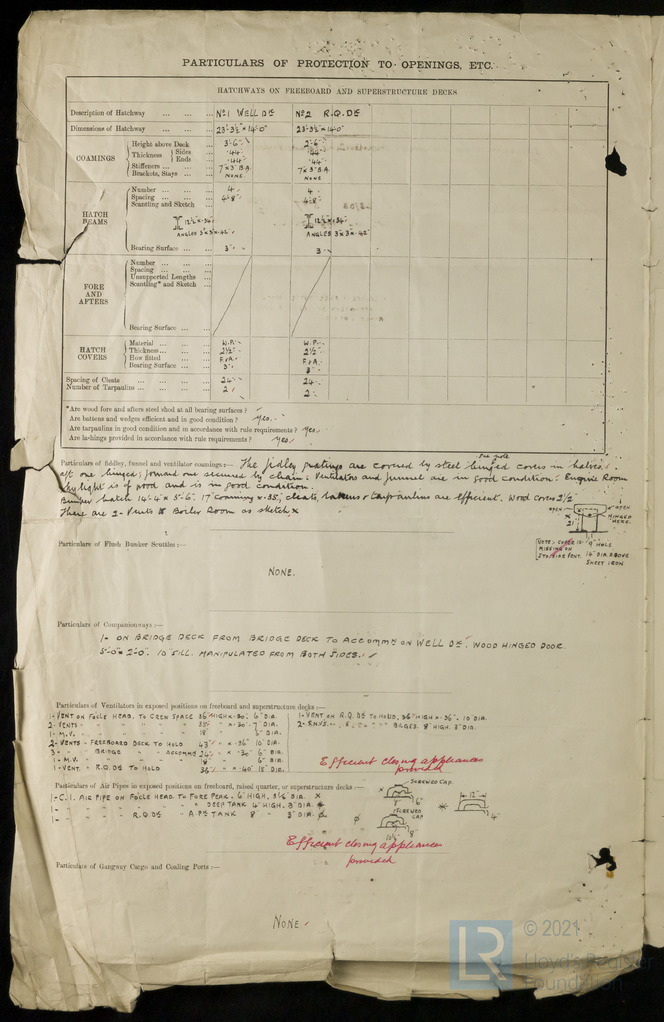 PARTICULARS OF PROTECTION TO OPENINGS, ETC.
HATCHWAYS ON FREEBOARD AND SUPERSTRUCTURE DECKS
Description of Hatchway ... ... ... No1 WELL DK No2 R.Q.DK
Dimensions of Hatchway ... ... ... 23'-3½" × 14'-0" 23'-3½" × 14'-0"
COAMINGS
Height above Deck ... 3'-6" 2'-6"
Thickness Sides ... .44 .44
Ends ... .44 .44
Stiffeners ... ... ... 7" × 3" B.A. 7" × 3" B.A.
Brackets, Stays ... ... NONE NONE
HATCH BEAMS
Number ... ... ... 4 4
Spacing ... ... ... 4'-8" 4'-8"
Scantling and Sketch ... 12½" × .34 12½" × .34
ANGLES 3" × 3" × .42 ANGLES 3" × 3" × .42
Bearing Surface ... ... 3" 3"
FORE AND AFTERS
Number ... ... ...
Spacing ... ... ...
Unsupported Lengths ...
Scantling* and Sketch ...
Bearing Surface ... ...
HATCH COVERS
Material ... ... ... W.P. W.P.
Thickness ... ... ... 2½" 2½"
How fitted ... ... F.&A. F.&A.
Bearing Surface ... ... 3" 3"
Spacing of Cleats ... ... ... ... 24" 24"
Number of Tarpaulins ... ... ... 2 2
*Are wood fore and afters steel shod at all bearing surfaces?
Are battens and wedges efficient and in good condition? Yes.
Are tarpaulins in good condition and in accordance with rule requirements? Yes.
Are lashings provided in accordance with rule requirements? Yes
Particulars of fiddley, funnel and ventilator coamings:— The fidley gratings are covered by steel hinged covers in halves.
aft one hinged, forward one secured by chain. Ventilators and funnel are in good condition. Engine Room
skylight is of wood and is in good condition.
Bunker hatch 14'-4" × 5'-6" 17" coaming × .38, cleats, battens & tarpaulins are efficient. Wood covers 2½"
There are 2- Vents to Boiler Room as sketch ×
OPEN OPEN
HINGED HERE.
NOTE, COVER IS MISSING ON STB SIDE VENT.
9" HOLE
14" DIA. ABOVE
SHEET IRON
Particulars of Flush Bunker Scuttles:—
NONE.
Particulars of Companionways:—
1- ON BRIDGE DECK FROM BRIDGE DECK TO ACCOMMN ON WELL DK. WOOD HINGED DOOR.
5'-0" × 2'-0". 10" SILL. MANIPULATED FROM BOTH SIDES.
Particulars of Ventilators in exposed positions on freeboard and superstructure decks:—
1- VENT ON FOCLE HEAD. TO CREW SPACE 36" HIGH × .30. 6" DIA.
2- VENTS " " " " " " × .30 7" DIA.
1- M.V. " " " " " 18" 6" DIA.
2- VENTS - FREEBOARD DECK TO HOLD 43" " × .36 10" DIA.
3 " " BRIDGE " " ACCOMMN 24" " × .30 6" DIA.
1- M.V. " " " 18" 6" DIA.
1- VENT. " R.Q.DK TO HOLD 36" " × .40 18" DIA.
1- VENT ON R.Q. DK TO HOLD, 36" HIGH × .36. 10" DIA.
BLGES. 8" HIGH. 3" DIA.
Efficient closing appliances
provided
Particulars of Air Pipes in exposed positions on freeboard, raised quarter, or superstructure decks:—
1- C.I. AIR PIPE ON FOCLE HEAD. TO FORE PEAK. 6" HIGH. 3½" DIA. ×
1- " " " " " " DEEP TANK 4" HIGH. 3" DIA. *
1- " " " R.Q.DK " A.PK TANK 8" " 3" DIA. ø
SCREWED CAP.
6"
12"
4"
SCREWED CAP
10½"
8"
Efficient closing appliances
provided
Particulars of Gangway Cargo and Coaling Ports:—
NONE.
© 2021
LR
Lloyd's Register
Foundation